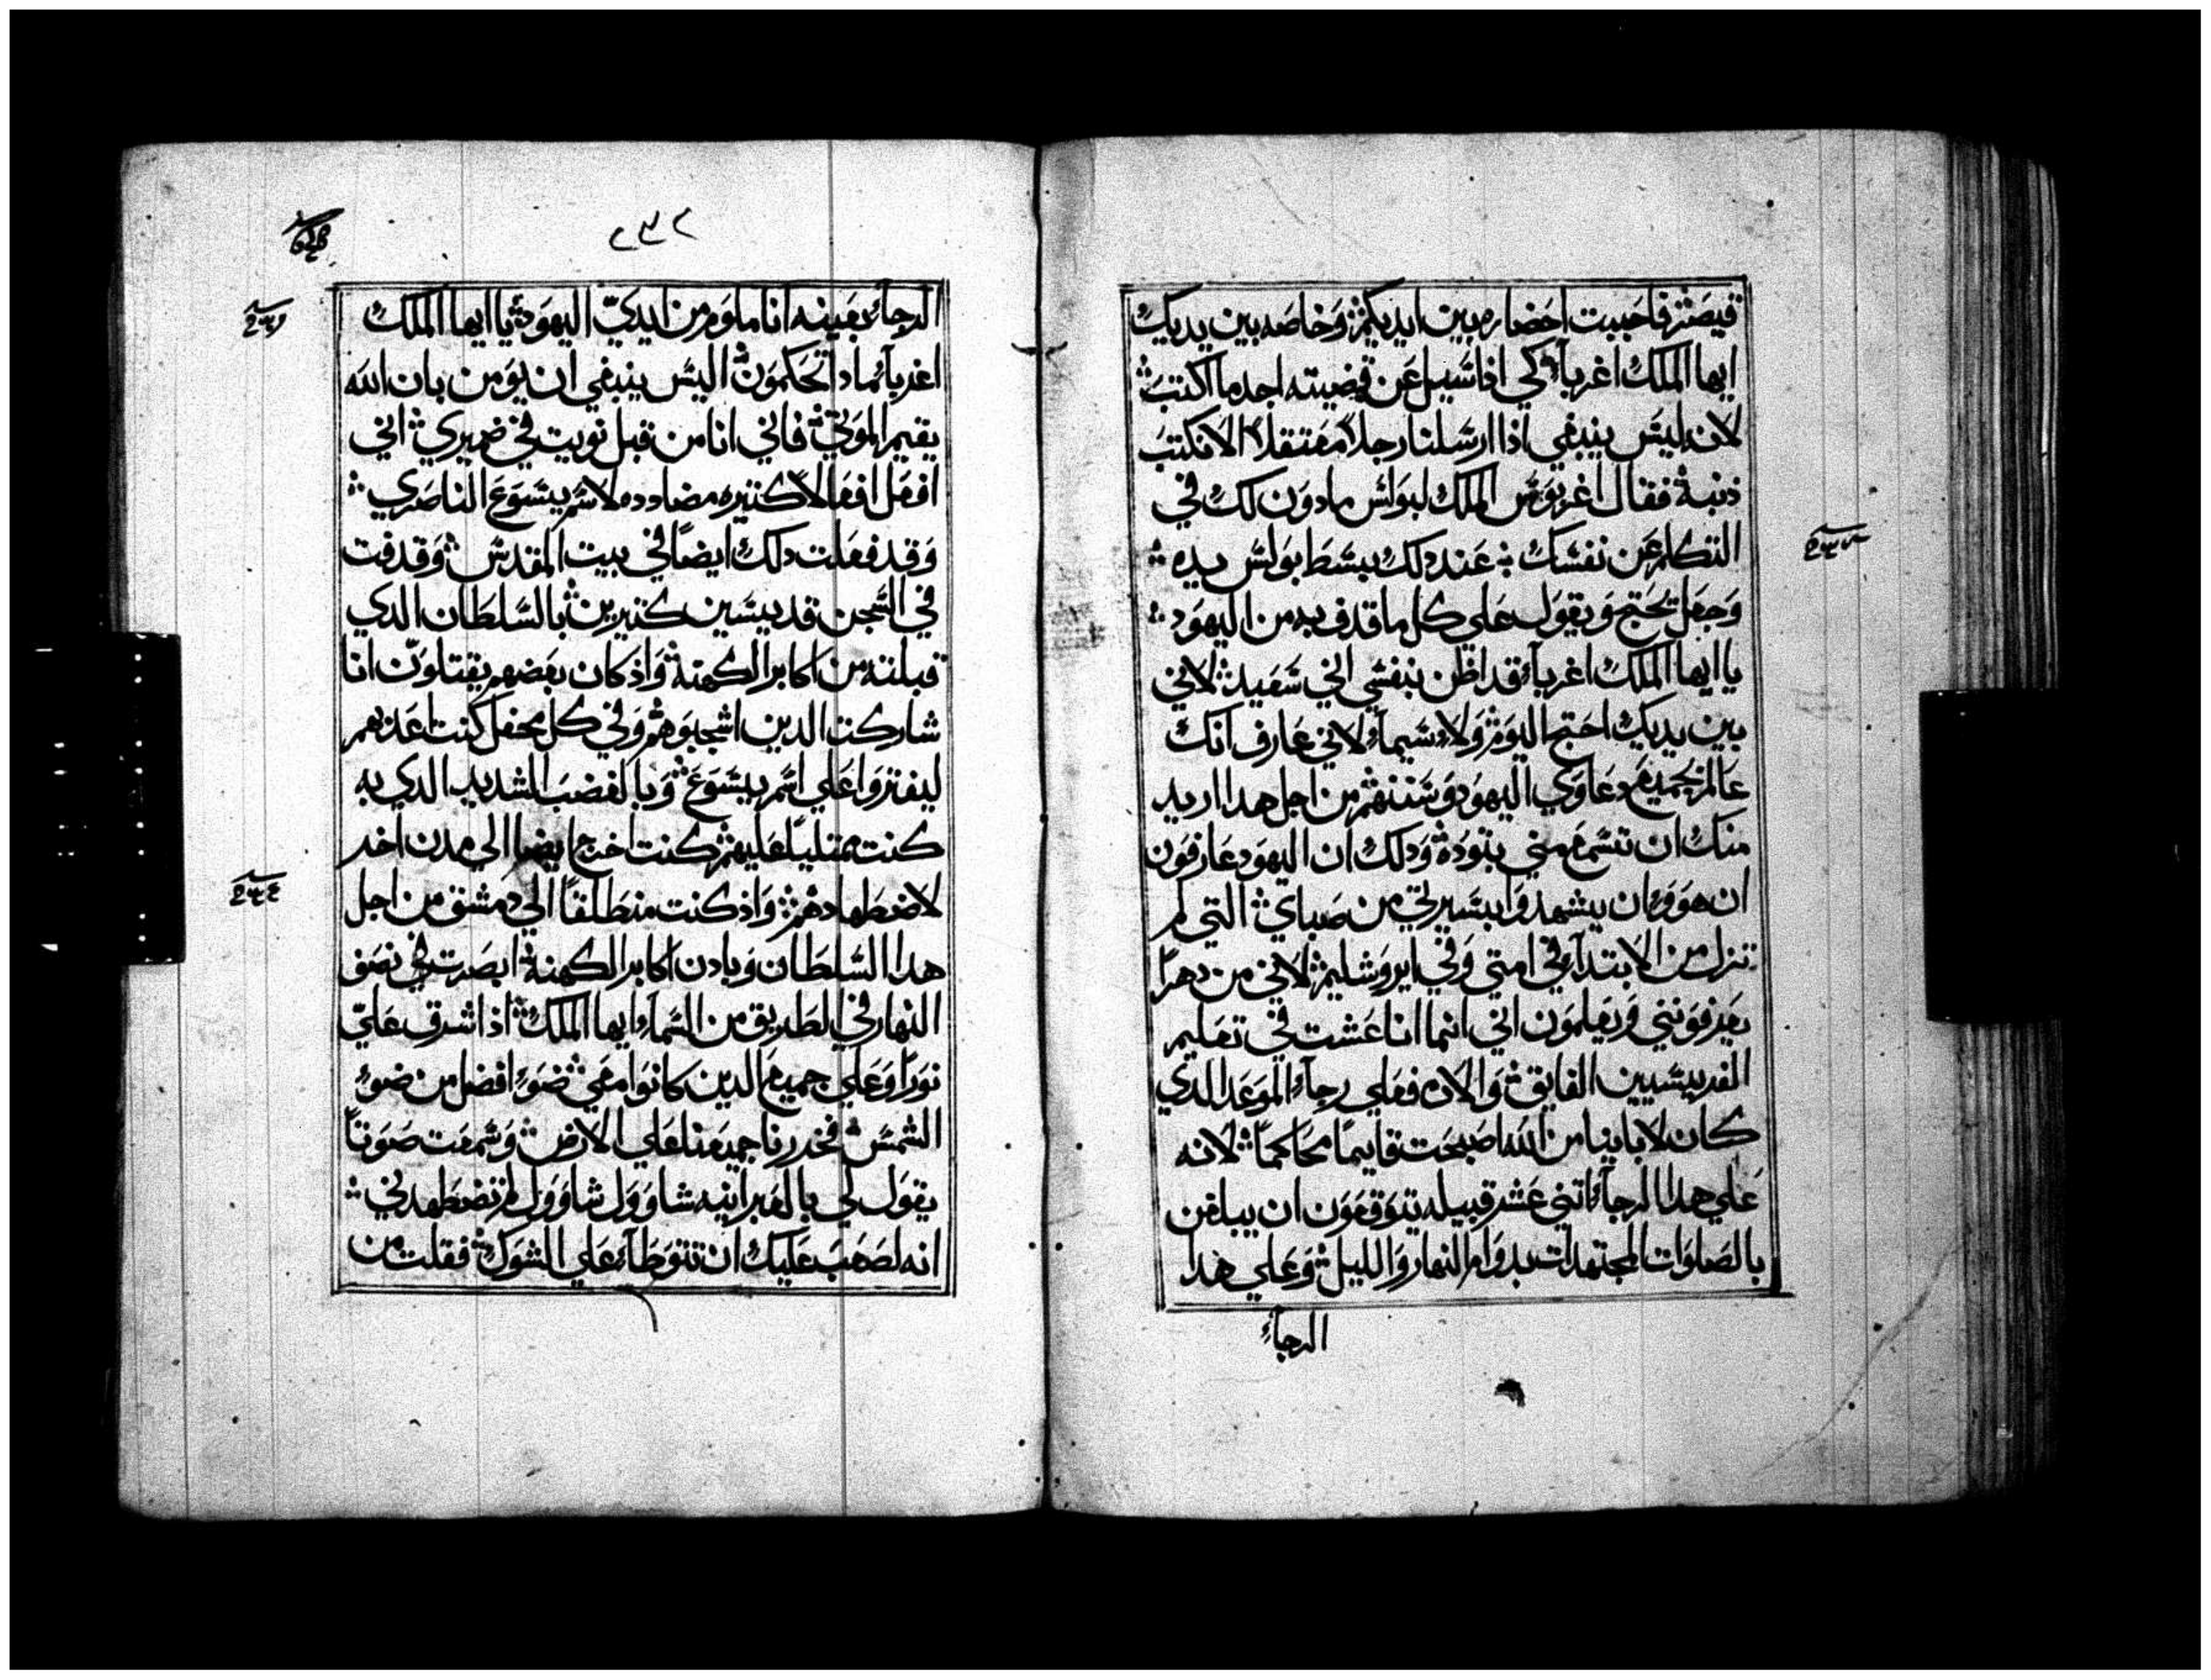 قيصر فاحببت احضاره بين ايديكم وخاصه بين يديك
ايها الملك اغرباء كي اذا سيل عن قضيته اجد ما اكتب
لانه ليس ينبغي اذا ارسلنا رجلاً معتقلاً الا نكتب
ذنبه فقال اغريوس الملك لبولس مادون لك في
التكلم عن نفسك عند دلك بسط بولس يده
وجعل يحتج ويقول علي كل ما قدف به من اليهود
يا ايها الملك اغرباء قد اظن بنفسي اني سعيد لاني
بين يديك احتج اليوم ولا سيماء لاني عارف انك
عالم بجميع دعاوي اليهود وسننهم من اجل هدا اريد
منك ان تسمع مني بتوده ودلك ان اليهود عارفون
ان هووا ان يشهدوا بسيرتي من صباي التي لم
تزل من الابتداء في امتي وفي ايروشليم لاني من دهراً
يعرفونني ويعلمون اني انما انا عشت في تعليم
الفريسيين الفايق والان فعلي رجاء الموعد الدي
كان لابابنا من الله اصبحت قايماً محاكماً لانه
علي هدا الرجاء اتني عشر قبيله يتوقعون ان يبلغن
بالصلوات المجتهدات بدوام النهار والليل وعلي هدا
الرجاء
٢٣٢
الرجاء بعينه انا ملوم من ايدي اليهود يا ايها الملك
اغرباء مادا تحكمون اليس ينبغي ان يومن بان الله
يقيم الموتي فاني انا من قبل نويت في ضميري اني
افعل افعالاً كتيره مضادده لاسم يسوع الناصري
وقد فعلت دلك ايضاً في بيت المقدس وقدفت
في السجن قديسين كتيرين بالسلطان الدي
قبلته من اكابر الكهنة واذ كان بعضهم يقتلون انا
شاركت الدين اشجبوهم وفي كل محفل كنت اعذبهم
ليفتروا علي اسم يسوع وبالغضب الشديد الدي به
كنت ممتلياً عليهم كنت اخرج ايضا الي مدن اخر
لاضطهادهم واذ كنت منطلقاً الي دمشق من اجل
هدا السلطان وبادن اكابر الكهنة ابصرت في نصف
النهار في الطريق من السماء ايها الملك اذ اشرق علي
نوراً وعلي جميع الدين كانوا معي ضوء افضل من ضوء
الشمس فخررنا جميعنا علي الارض وسمعت صوتاً
يقول لي بالعبرانيه شاوول شاوول لم تضطهدني
انه لصعب عليك ان تتوطاء علي الشوك فقلت من